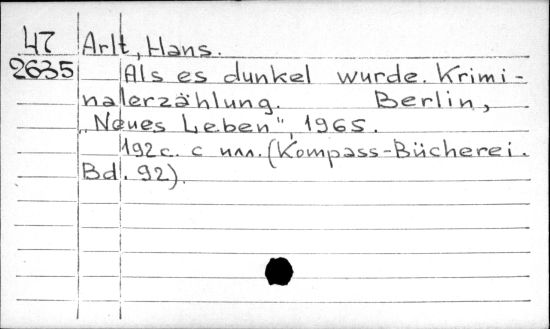 47 Arlt, Hans.
2635 Als es dunkel wurde. Krimi-
nalerzählung. Berlin,
„Neues Leben", 1965.
192 с. с илл. (Kompass-Bücherei.
Bd. 92).